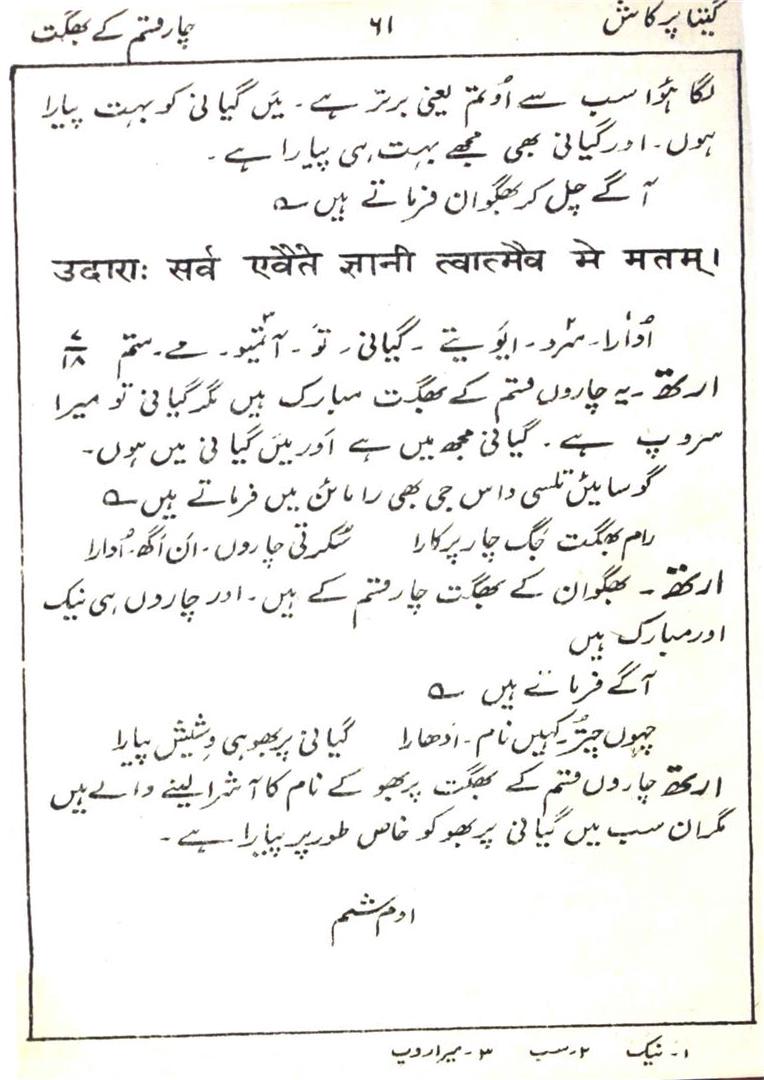 گیتا پرکاش ۶۱ چار قسم کے بھگت
لگا ہؤا سب سے اُوتم یعنی برتر ہے۔ میَں گیانی کو بہت پیارا
ہوں۔ اور گیانی بھی مجھے بہت ہی پیارا ہے۔
آگے چل کر بھگوان فرماتے ہیں ؎
उदाराः सर्व एवैते ज्ञानी त्वात्मैव मे मतम्।
اُودارا۔ سرو۔ ایَویتے۔ گیانی۔ توَ۔ آتمیَو۔ مے۔ ستم ۷/۱۸
ارتھ۔ یہ چاروں قسم کے بھگت مبارک ہیں مگر گیانی تو میرا
سروپ ہے۔ گیانی مجھ میں ہے اَور میَں گیانی میں ہوں۔
گوسائیں تلسی داس جی بھی رامائن میں فرماتے ہیں ؎
رام بھگت جگ چار پرکارا سُکرتی چاروں۔ ان اَگھ۔ اُدارا
ارتھ۔ بھگوان کے بھگت چار قسم کے ہیں۔ اور چاروں ہی نیک
اور مبارک ہیں
آگے فرماتے ہیں ؎
چہوں چتُر۔ کہیں نام۔ اَدھارا گیانی پربھوہی وِشیش پیارا
ارتھ چاروں قسم کے بھگت پربھو کے نام کا آشرا لینے والے ہیں
مگر ان سب میں گیانی پربھو کو خاص طور پر پیارا ہے۔
اوم شم
۱۔ نیک ۲۔ سب ۳۔ میرا روپ